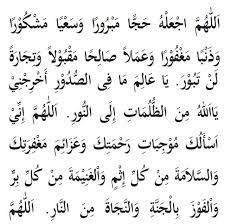 اَللّٰهُمَّ اجْعَلْهُ حَجًّا مَبْرُوْرًا وَسَعْيًا مَشْكُوْرًا
وَذَنْبًا مَغْفُوْرًا وَعَمَلًا صَالِحًا مَقْبُوْلًا وَتِجَارَةً
لَنْ تَبُوْرَ. يَا عَالِمَ مَا فِى الصُّدُوْرِ أَخْرِجْنِيْ
يَااَللهُ مِنَ الظُّلُمَاتِ إِلَى النُّوْرِ. اَللّٰهُمَّ إِنِّيْ
اَسْأَلُكَ مُوْجِبَاتِ رَحْمَتِكَ وَعَزَائِمَ مَغْفِرَتِكَ
وَالسَّلَامَةَ مِنْ كُلِّ إِثْمٍ وَالْغَنِيْمَةَ مِنْ كُلِّ بِرٍّ
وَالْفَوْزَ بِالْجَنَّةِ وَالنَّجَاةَ مِنَ النَّارِ. اَللّٰهُمَّ